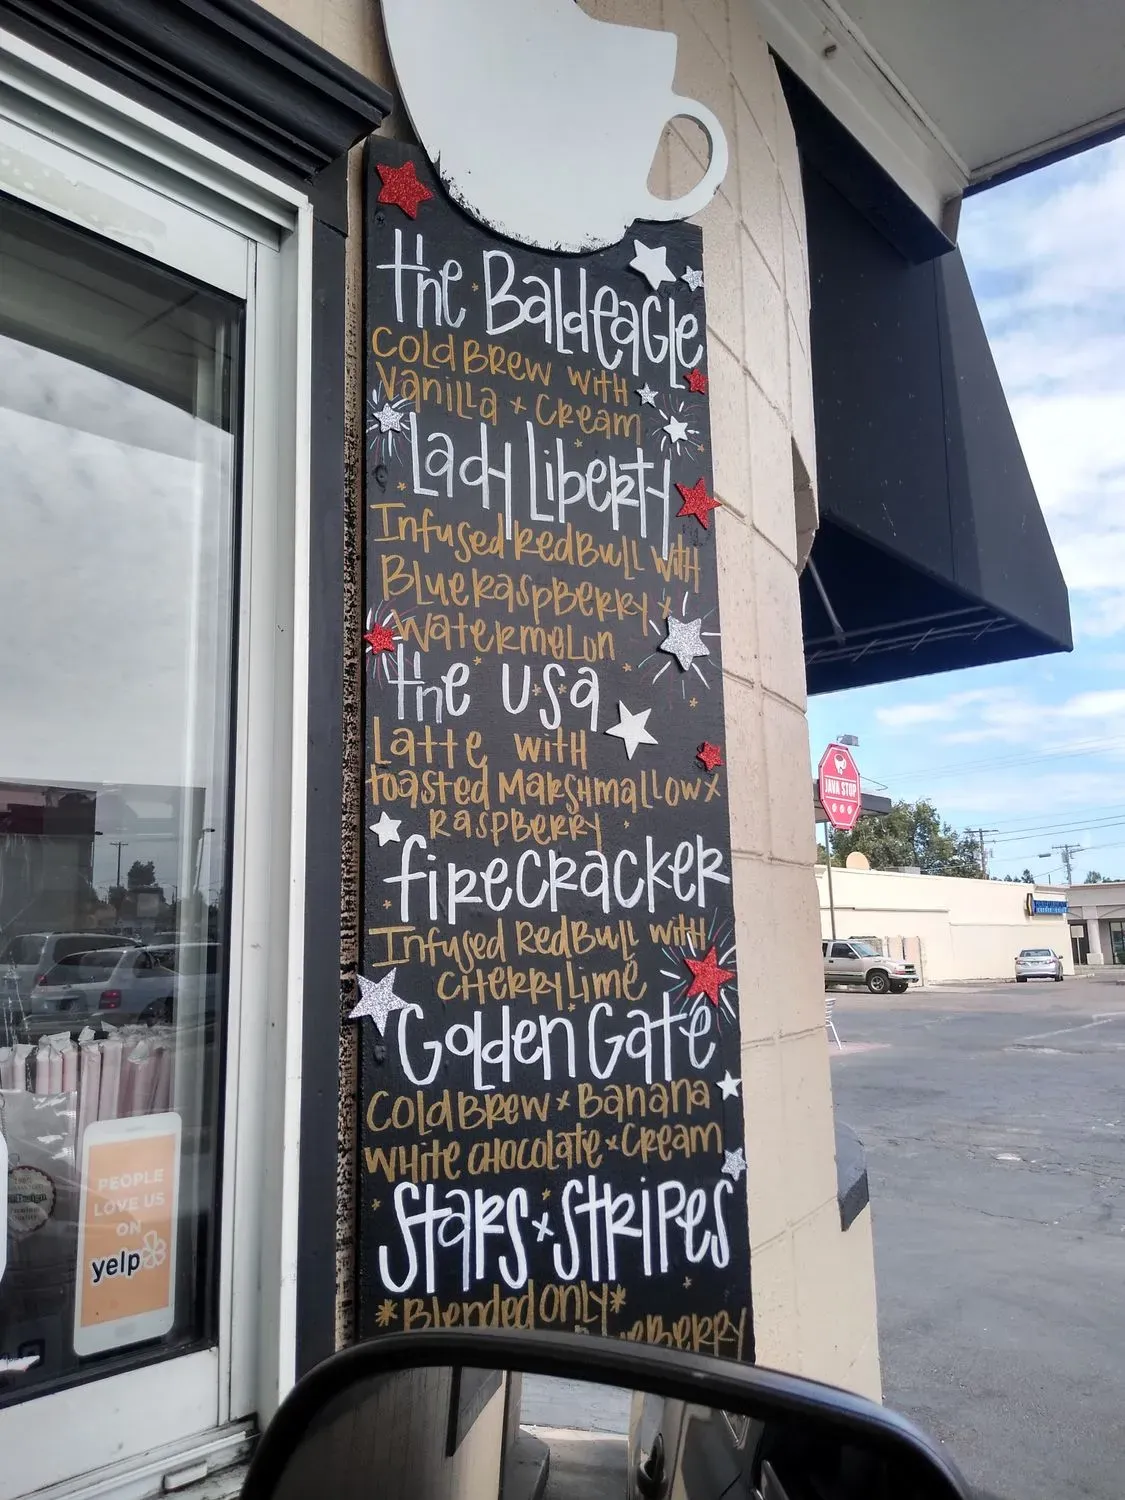 the Baldeagle
Cold Brew with
Vanilla + Cream
Lady Liberty
Infused RedBull with
Blue Raspberry x
Watermelon
the USA
Latte with
toasted Marshmallow x
Raspberry
firecracker
Infused RedBull with
Cherry Lime
Golden Gate
Cold Brew x Banana
White chocolate x Cream
Stars x Stripes
*Blended only*
JAVA STOP
PEOPLE
LOVE US
ON
yelp